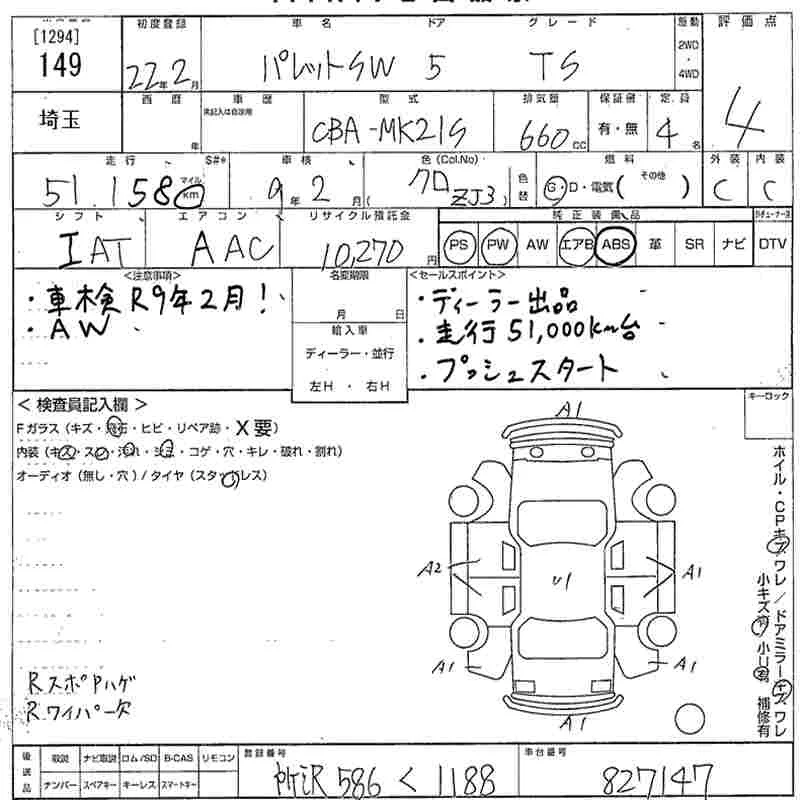 [1294]
149
初度登録
22年2月
車名
パレットSW
ドア
5
グレード
TS
駆動
2WD
・
4WD
評価点
4
埼玉
西暦
年
車歴
未記入は自家用
型式
CBA-MK21S
排気量
660cc
保証書
有・無
定員
4名
走行
51,158
マイル
km
S#*
車検
9年2月
色(Col.No)
(クロ ZJ3)
色替
燃料
G・D・電気(その他)
外装
C
内装
C
シフト
IAT
エアコン
AAC
リサイクル預託金
10,270円
純正装備品
PS PW AW エアB ABS 革 SR ナビ
DTV
<注意事項>
・車検R9年2月!
・AW
名変期限
月 日
輸入車
ディーラー・並行
左H ・ 右H
<セールスポイント>
・ディーラー出品
・走行51,000km台
・プッシュスタート
<検査員記入欄>
Fガラス(キズ・飛石・ヒビ・リペア跡・X要)
内装(キズ・スレ・汚れ・シミ・コゲ・穴・キレ・破れ・割れ)
オーディオ(無し・穴)/タイヤ(スタッドレス)
キーロック
A1
A2
A1
U1
A1
A1
A1
ホイル・CPキズワレ/ドアミラーキズワレ
小キズ有 小U有 補修有
RスポPハゲ
Rワイパー欠
後送品
取説 ナビ取説 ロム/SD B-CAS リモコン
ナンバー スペアキー キーレス スマートキー
登録番号
所沢 586 く 1188
車台番号
827147